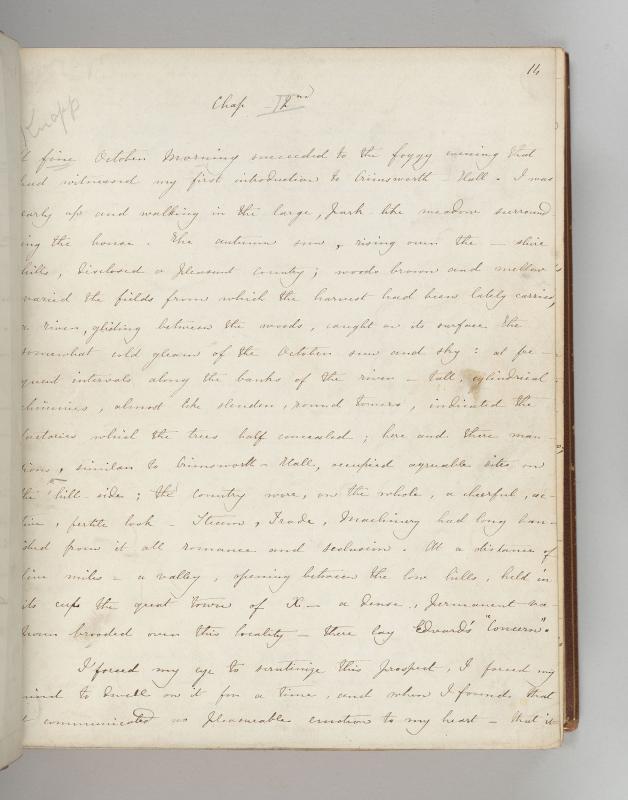 14
Knapp
Chap II nd
A fine October Morning succeeded to the foggy evening that
had witnessed my first introduction to Crimsworth-Hall. I was
early up and walking in the large, park-like meadow surround
ing the house. The autumn sun, rising over the — shire
hills, disclosed a pleasant country; woods brown and mellow
varied the fields from which the harvest had been lately carried,
a river, gliding between the woods, caught on its surface the
somewhat cold gleam of the October sun and sky: at fre-
quent intervals along the banks of the river — tall, cylindrical
chimnies, almost like slender, round towers, indicated the
factories which the trees half concealed; here and there man-
sions, similar to Crimsworth-Hall, occupied agreeable sites on
the hill-side; the country wore, on the whole, a cheerful, ac-
tive, fertile look — Steam, Trade, Machinery had long ban-
ished from it all romance and seclusion. At a distance of
five miles — a valley, opening between the low hills, held in
its cups the great town of X— a dense, permanent va-
pour brooded over this locality — there lay Edward's "Concern".
I forced my eye to scrutinize this prospect, I forced my
mind to dwell on it for a time, and when I found that
it communicated no pleasurable emotion to my heart — that it